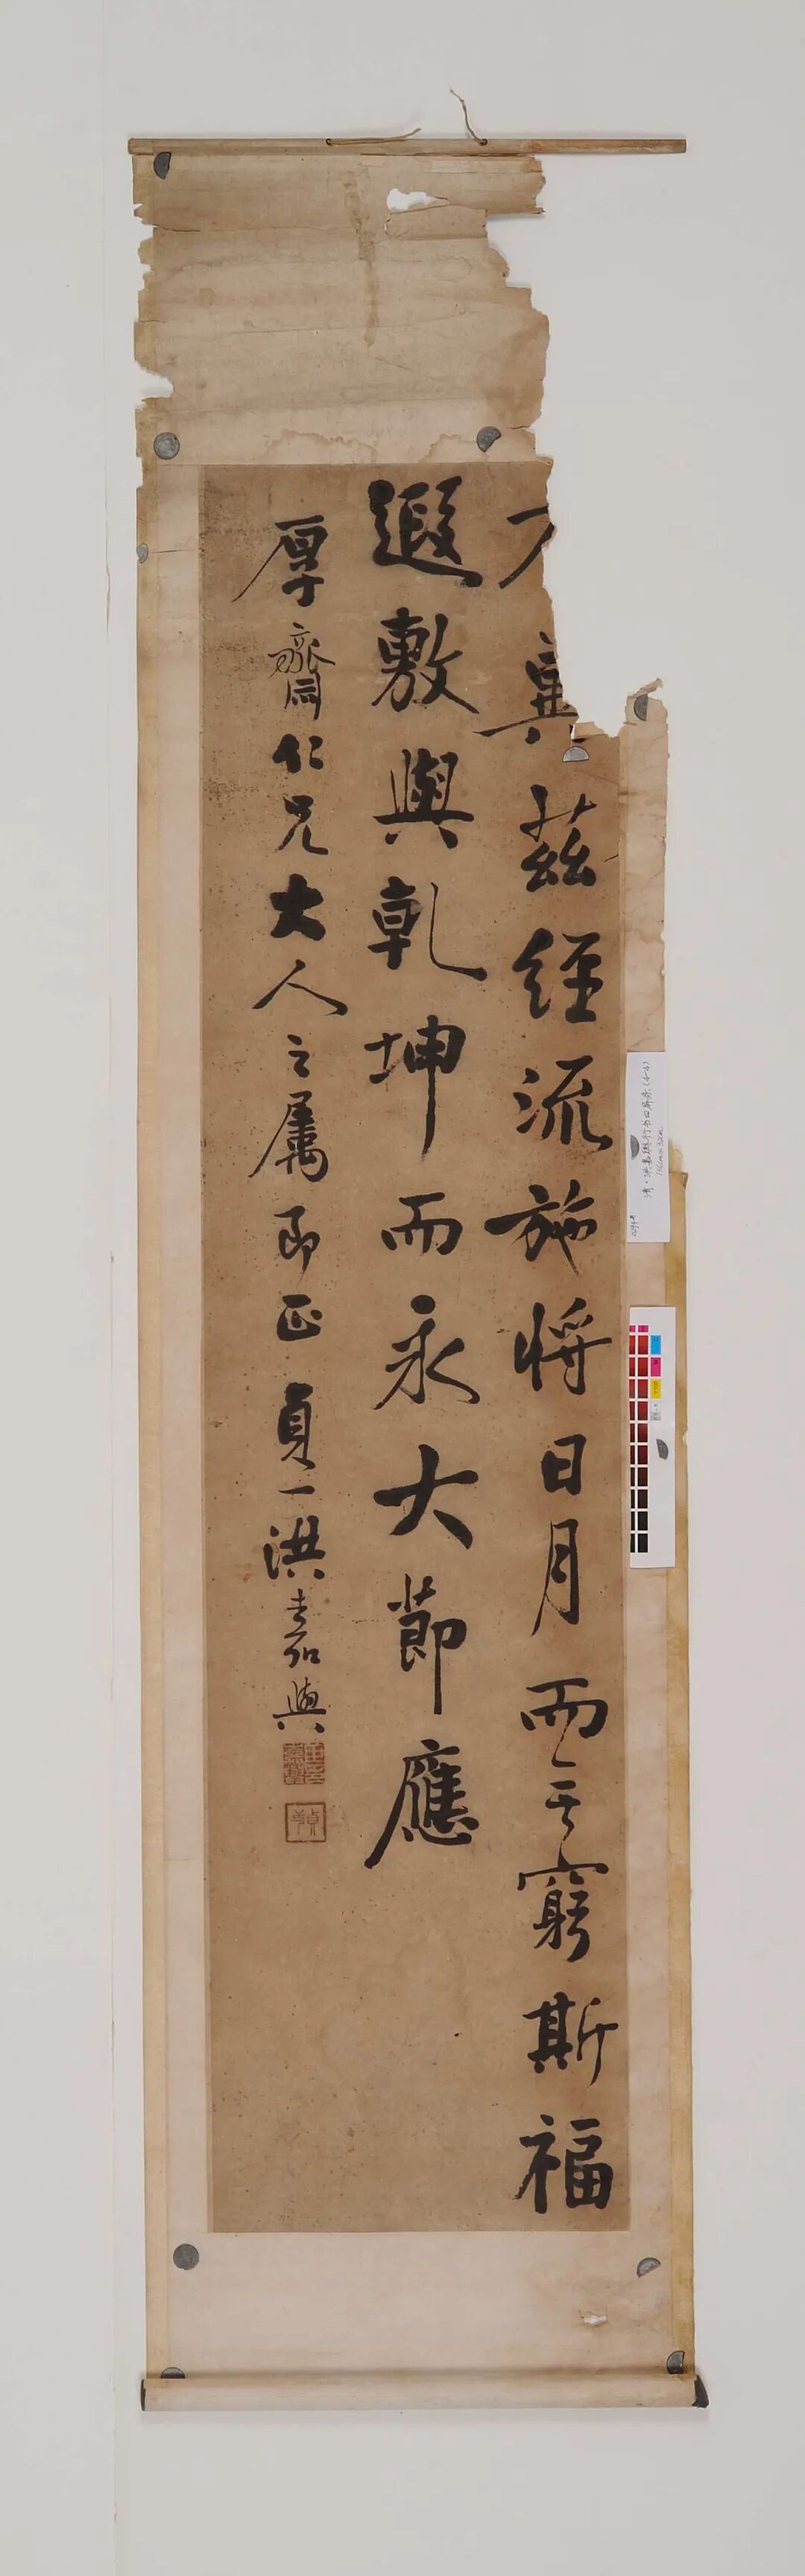 冀茲經流施將日月而無窮斯福
遐敷與乾坤而永大節應
厚齋仁兄大人之属即正貞一洪嘉與